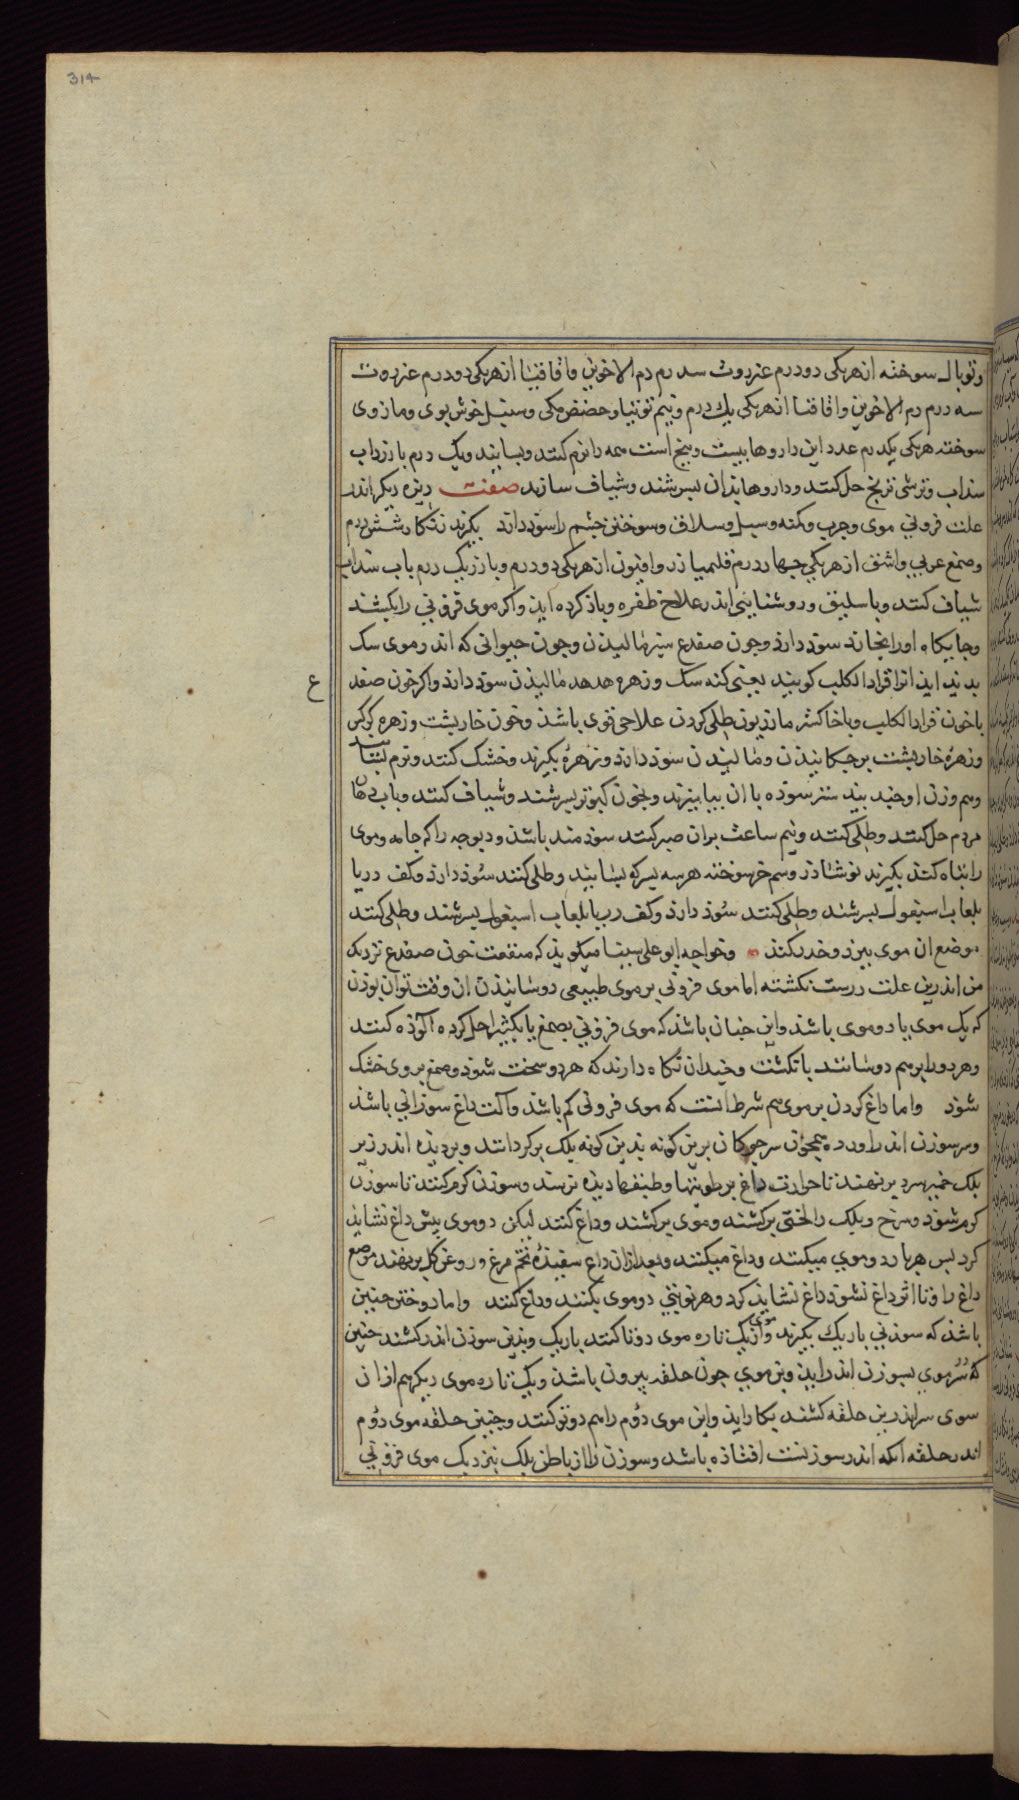 314
وتوبال سوخته از هر یکی دو درم عنزروت سه درم دم الاخوین واقاقیا از هر یکی دو درم عنزروت
سه درم دم الاخوین واقاقیا از هر یکی یك درم ونیم توتیا وحضض مکی وسنبل خوش بوی ومازوی
سوخته هر یکی یکدرم عدد این داروها بیست وپنج است همه را نرم کنند وبسایند ویک درم بارزد اب
سداب وترشی ترنج حل کنند وداروها بذان بسرشند وشیاف سازند صفت دیزه دیکر اندر
علت فزونی موی وجرب وحکه وسبل وسلاق وسوختن چشم را سوذ دارد بکیرند زنکار شش درم
وصمغ عربی واشق از هر یکی چهار درم قلیمیا زر وافیون از هر یکی دو درم وبارزد یک درم باب سداب
شیاف کنند وباسلیق وروشنایی اندر علاج ظفره ویاذ کرده ایذ واکر موی فزونی را بکشند
وجایکاه اورا بخارند سوذ دارذ وچون ضفدع سبز مالیذن وچون حیوانی که اندر موی سک
بدید ایذ انرا قراد الکلب کویند یعنی کنه سک وزهره هدهد مالیذن سوذ دارذ واکر خون ضفد
ع
با خون قراد الکلب وبا خاکستر مازریون طلی کردن علاجی قوی باشذ وخون خاربشت وزهره کرکس
وزهره خاربشت برچکانیذن ومالیذن سوذ دارد وزهره بکیرند وخشک کنند ونرم بسایند
وهم وزن او جند بیدستر سوذه با ان بیامیزند وبخون کبوتر بسرشند وشیاف کنند وباب دهان
مردم حل کنند وطلی کنند ونیم ساعت بران صبر کنند سوذمند باشذ ودیوچه را که جامه وموی
را تباه کند بکیرند نوشاذر وسم خر سوخته هر سه بسرکه بسایند وطلی کنند سوذ دارذ وکف دریا
بلعاب اسبغول بسرشند وطلی کنند سوذ دارذ وکف دریا بلعاب اسبغول بسرشند وطلی کنند
موضع ان موی ببرذ وخدر کند وخواجه ابو علی سینا میکویذ که منفعت خون ضفدع نزدیک
من اندرین علت درست نکشته اما موی فزونی بر موی طبیعی دوسانیذن ان وقت توان بوذن
که یک موی یا دو موی باشذ واین جنان باشذ که موی فزونی بصمغ یا بکثیرا حل کرده الوذه کنند
وهر دو را بر هم دوسانند بانکشت وجندان نکاه دارند که هر دو سخت شوذ وصمغ بر وی خشک
شوذ واما داغ کردن بر موی هم شرط انست که موی فزونی کم باشذ والت داغ سوزنی باشذ
وسر سوزن اندر اورده همجون سر چوکان برین کونه بذین کونه پلک برکردانند وبر دیذه اندر زیر
پلک خمیر سرد برنهند تا حرارت داغ برطوبتها وطبقها دیذه نرسد وسوزن کرم کنند تا سوزن
کرم شوذ وسرخ وپلک را لختی برکشند وموی برکشند وداغ کنند لیکن دو موی بیش داغ نشایذ
کرد بس هر بار دو موی میکنند وداغ میکنند وبعد ازان داغ سفیذه تخم مرغ وروغن کل برنهند موضع
داغ را وتا اثر داغ نشوذ داغ نشایذ کرد وهر نوبتی دو موی بکنند وداغ کنند واما دوختن چنین
باشذ که سوزنی باریك بکیرند وموی از یک تاره موی دوتا کنند باریک وبذین سوزن اندر کشند جنین
که سر موی بسوزن اندر ایذ وبن موی جون حلقه بیرون باشذ ویک تاره موی دیکر هم از ان
سوی سر اندرین حلقه کشند بکار ایذ واین موی دوم را هم دوتو کنند وجنین حلقه موی دوم
اندر حلقه انکه اندر سوزنست افتاذه باشد وسوزن را از باطن پلک بنزدیک موی فزونی